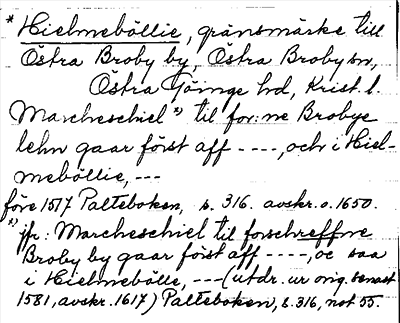 * Hielmeböllie, gränsmärke till
Östra Broby by, Östra Broby sn,
Östra Göinge hd, Krist. l.
Marcheschiel *) til for:ne Brobye
lehn gaar först aff ----, och i Hiel-
meböllie, ---
före 1517 Palteboken, s. 316. avskr. o. 1650.
*) jfr: Marcheschiel til forschreffne
Broby by gaar föist aff ----, oc saa
i Hielmebölle, --- (utdr. ur orig. senast
1581, avskr. 1617) Palteboken, s. 316, not 55.